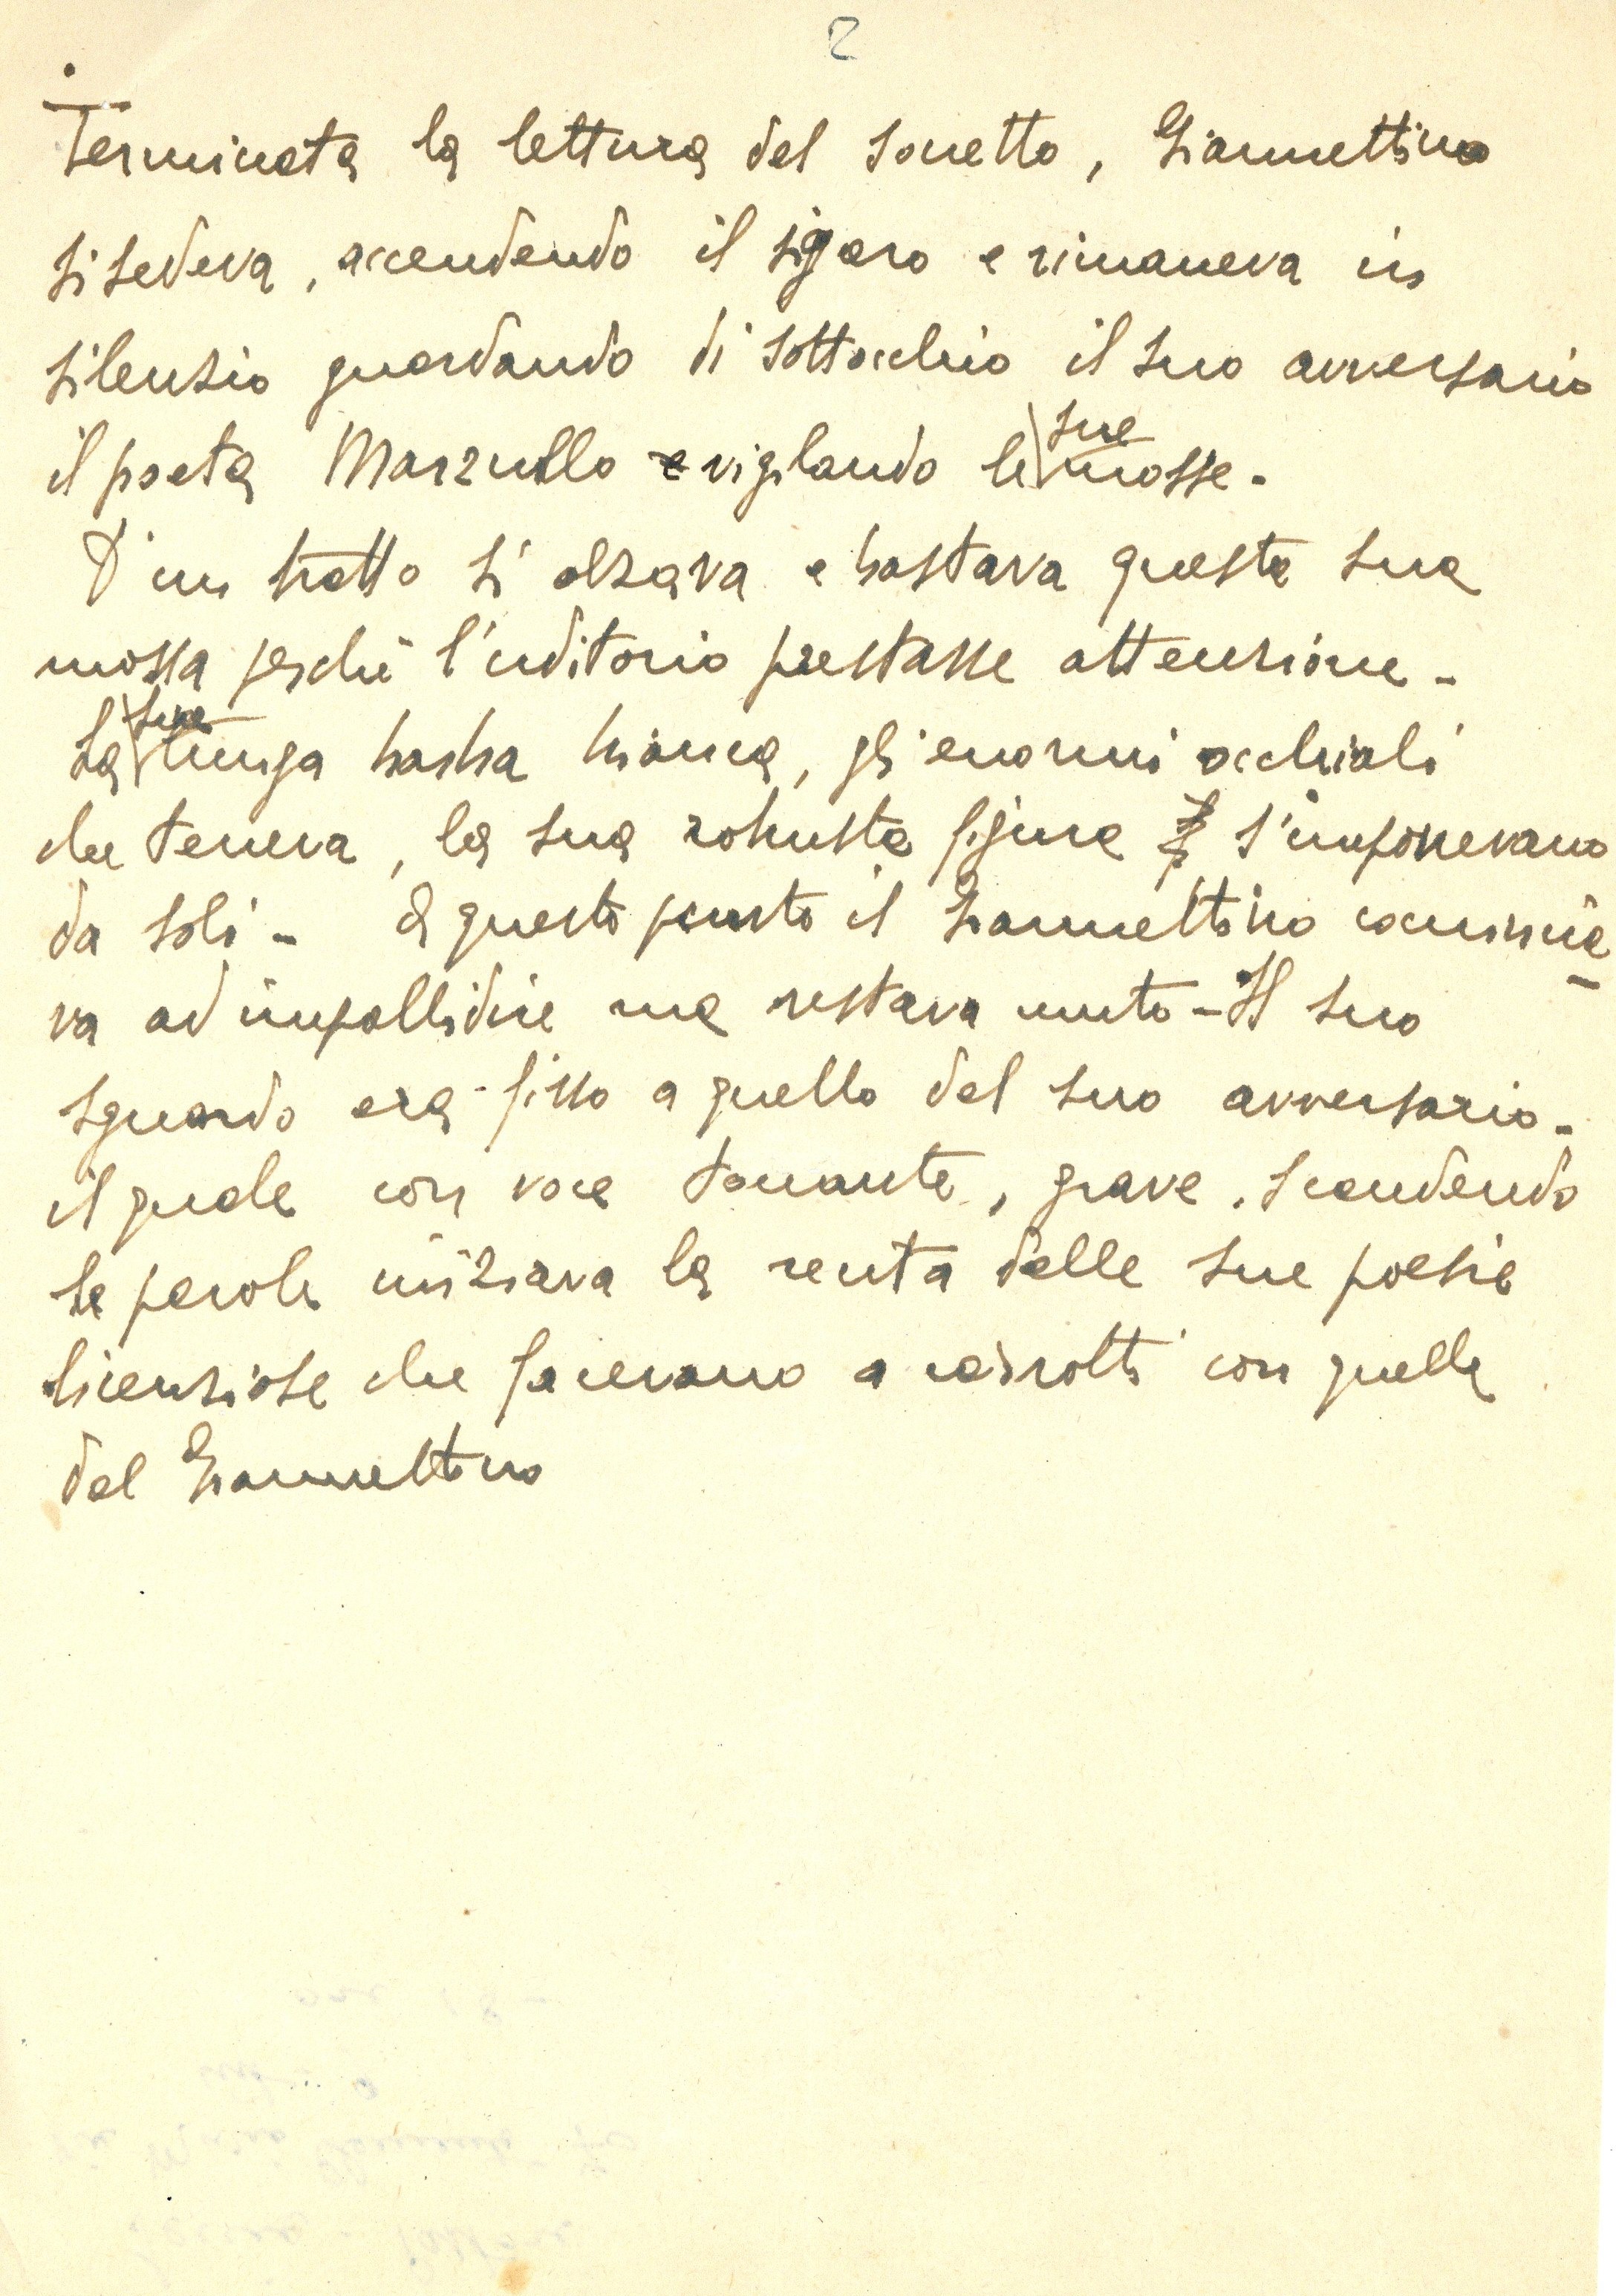 2
Terminata la lettura del sonetto, Giannettino
si sedeva, accendendo il sigaro e rimaneva in
silenzio guardando di sottocchio il suo avversario
il poeta Marzullo e vigilando le sue mosse -
D'un tratto si alzava e bastava questa sua
mossa perché l'uditorio prestasse attenzione -
La sua lunga barba bianca, gli enormi occhiali
che teneva, la sua robusta figura s'imponevano
da soli - A questo punto il Giannettino comincia
va ad impallidire ma restava muto - Il suo
sguardo era fisso a quello del suo avversario -
il quale con voce tonante, grave, scandendo
le parole iniziava la recita delle sue poesie
licenziose che facevano a cazzotti con quelle
del Giannettino